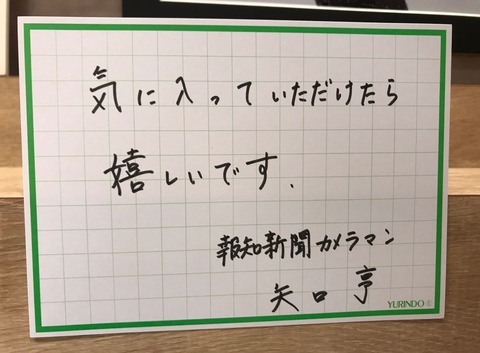 気に入っていただけたら
嬉しいです.
報知新聞カメラマン
矢口 亨
YURINDO